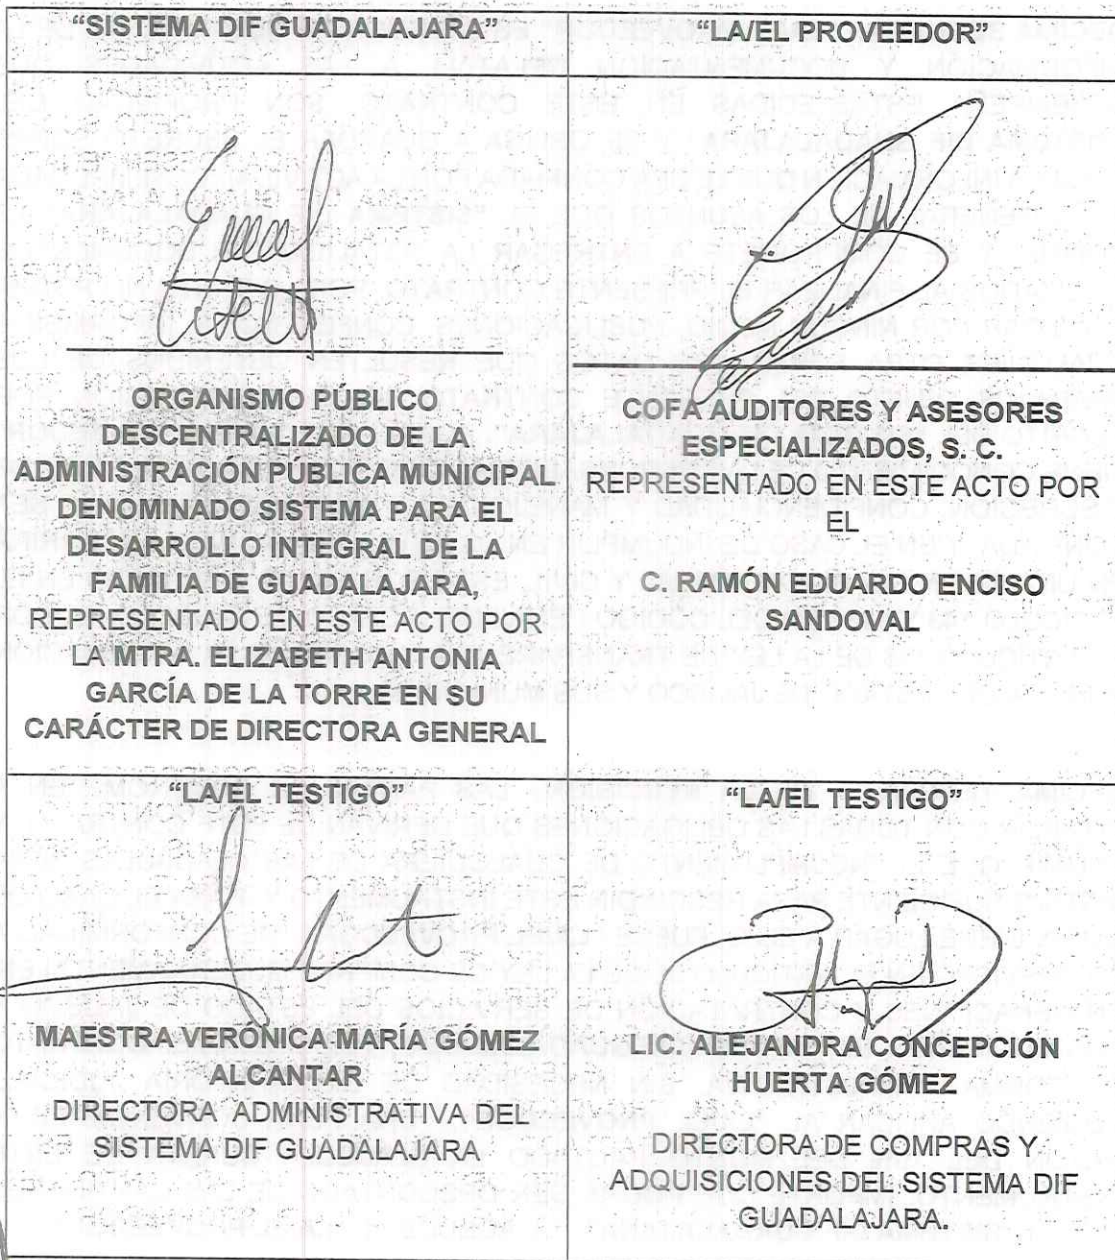 "SISTEMA DIF GUADALAJARA"
ORGANISMO PÚBLICO
DESCENTRALIZADO DE LA
ADMINISTRACIÓN PÚBLICA MUNICIPAL
DENOMINADO SISTEMA PARA EL
DESARROLLO INTEGRAL DE LA
FAMILIA DE GUADALAJARA,
REPRESENTADO EN ESTE ACTO POR
LA MTRA. ELIZABETH ANTONIA
GARCÍA DE LA TORRE EN SU
CARÁCTER DE DIRECTORA GENERAL
"LA/EL PROVEEDOR"
COFA AUDITORES Y ASESORES
ESPECIALIZADOS, S. C.
REPRESENTADO EN ESTE ACTO POR
EL
C. RAMÓN EDUARDO ENCISO
SANDOVAL
"LA/EL TESTIGO"
MAESTRA VERÓNICA MARÍA GÓMEZ
ALCANTAR
DIRECTORA ADMINISTRATIVA DEL
SISTEMA DIF GUADALAJARA
"LA/EL TESTIGO"
LIC. ALEJANDRA CONCEPCIÓN
HUERTA GÓMEZ
DIRECTORA DE COMPRAS Y
ADQUISICIONES DEL SISTEMA DIF
GUADALAJARA.